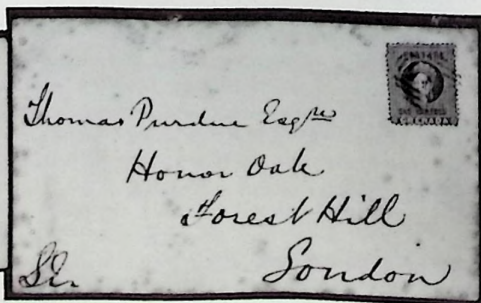 Thomas Purdue Esqre
Honor Oak
Forest Hill
London